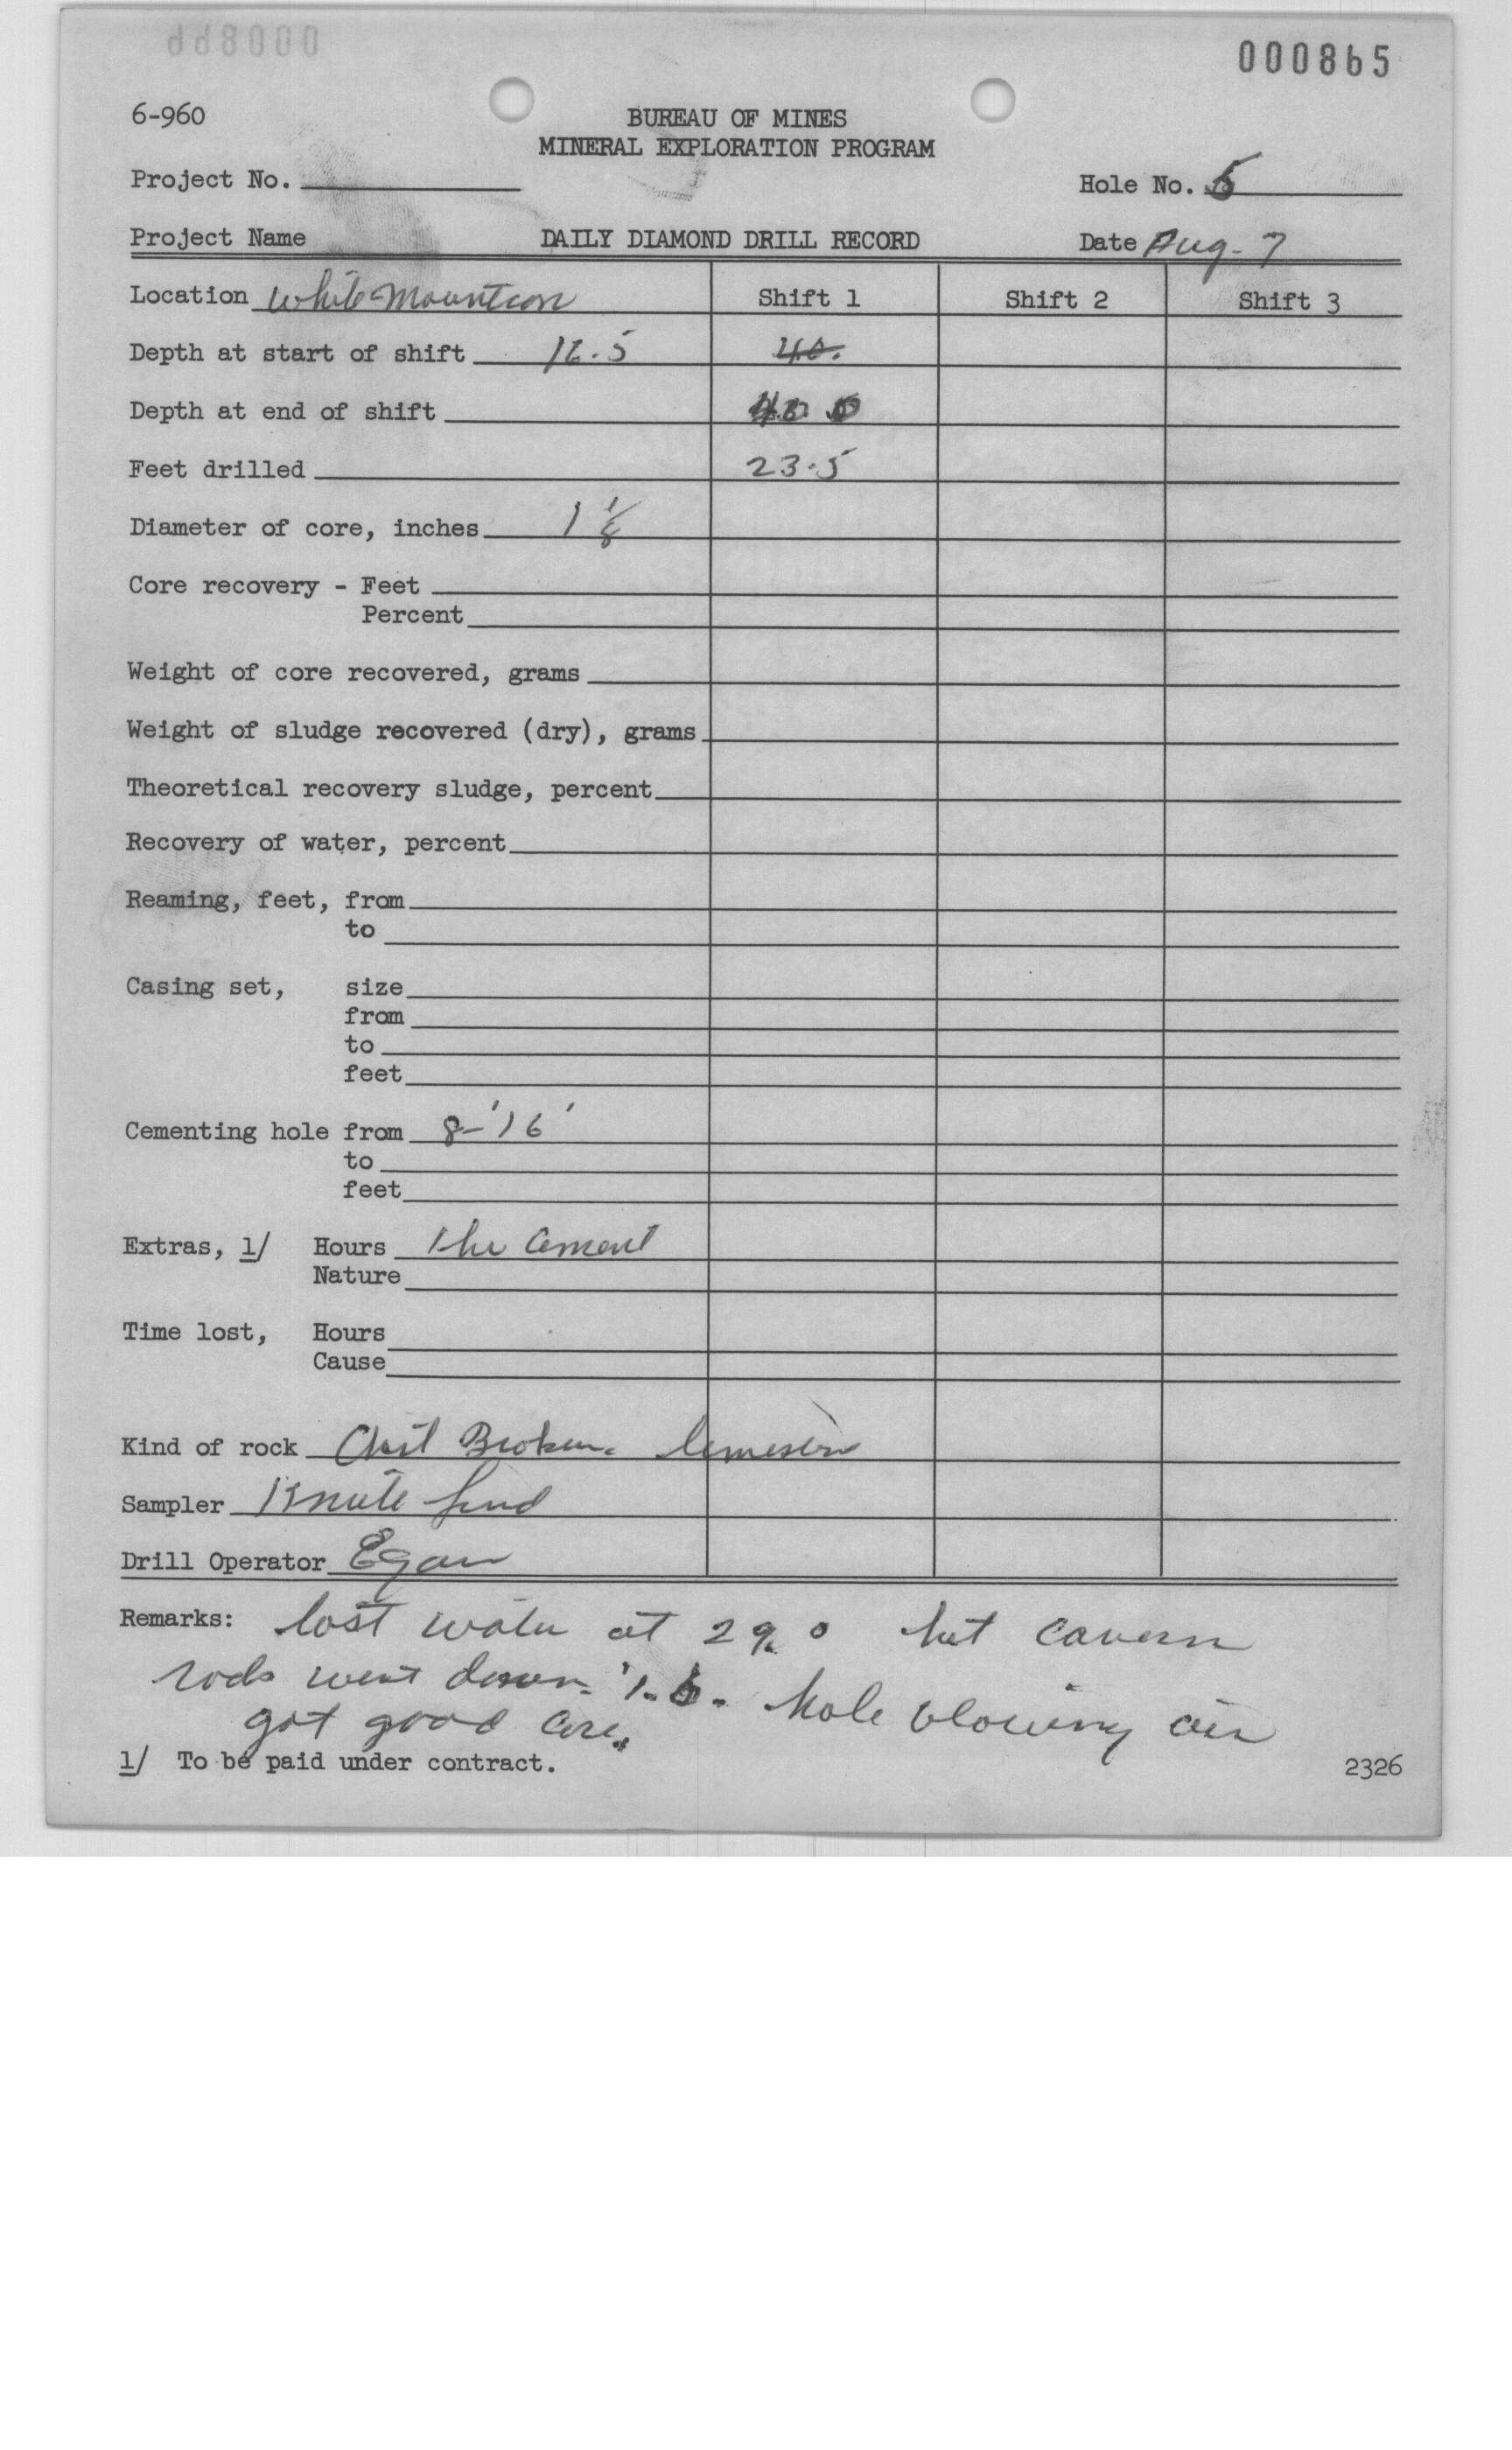 000865
6-960
BUREAU OF MINES
MINERAL EXPLORATION PROGRAM
Project No.
Hole No. 5
Project Name DAILY DIAMOND DRILL RECORD Date Aug. 7
Location White Mountain Shift 1 Shift 2 Shift 3
Depth at start of shift 16.5 40.
Depth at end of shift 40 0
Feet drilled 23.5
Diameter of core, inches 1 1/8
Core recovery - Feet
Percent
Weight of core recovered, grams
Weight of sludge recovered (dry), grams
Theoretical recovery sludge, percent
Recovery of water, percent
Reaming, feet, from
to
Casing set, size
from
to
feet
Cementing hole from 8-'16'
to
feet
Extras, 1/ Hours 1 hr Cement
Nature
Time lost, Hours
Cause
Kind of rock Broken
Sampler Knute
Drill Operator Egan
Remarks: lost water at 29.0 hit cavern
rods went down 1.5. hole blowing air
got good core.
1/ To be paid under contract.
2326